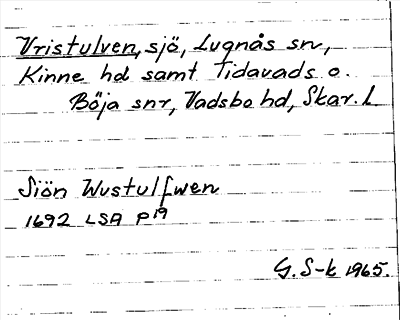 Vristulven, sjö, Lugnås sn,
Kinne hd samt Tidavads o.
Böja snr, Vadsbo hd, Skar. l.
Siön Wustulfwen
1692 LSA P19
G. S-k 1965.